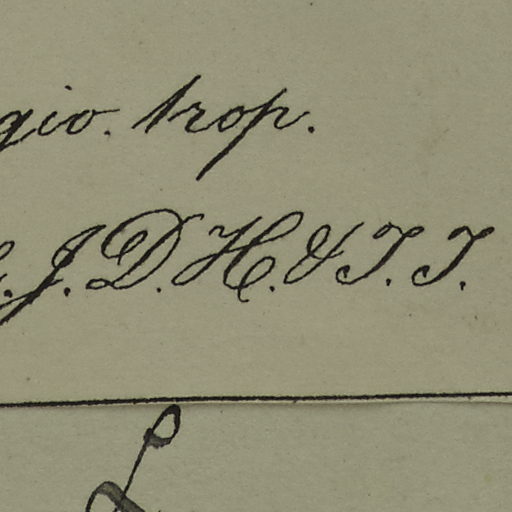 gio. trop.
J. D. H. & T. T.